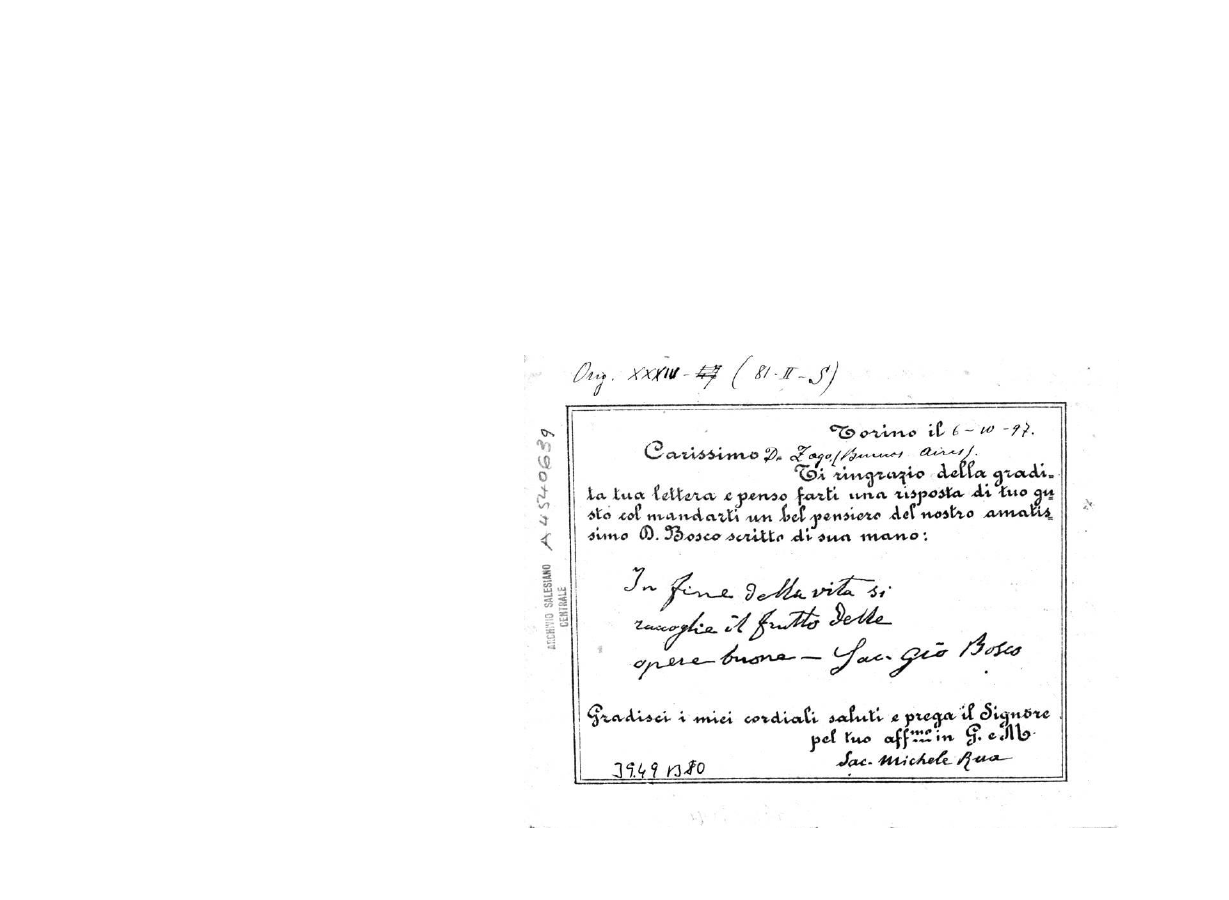 Orig. XXXIV - 47 (81-II-S)
Torino il 6-10-97.
Carissimo D. Zago, (Buenos Aires).
Ti ringrazio della gradi-
ta tua lettera e penso farti una risposta di tuo gu
sto col mandarti un bel pensiero del nostro amatis
simo D. Bosco scritto di sua mano:
In fine della vita si
raccoglie il frutto delle
opere buone - Sac. Gio Bosco
Gradisci i miei cordiali saluti e prega il Signore
pel tuo aff.mo in G. e M.
Sac. Michele Rua
3949 B80
A4540639
ARCHIVIO SALESIANO
CENTRALE